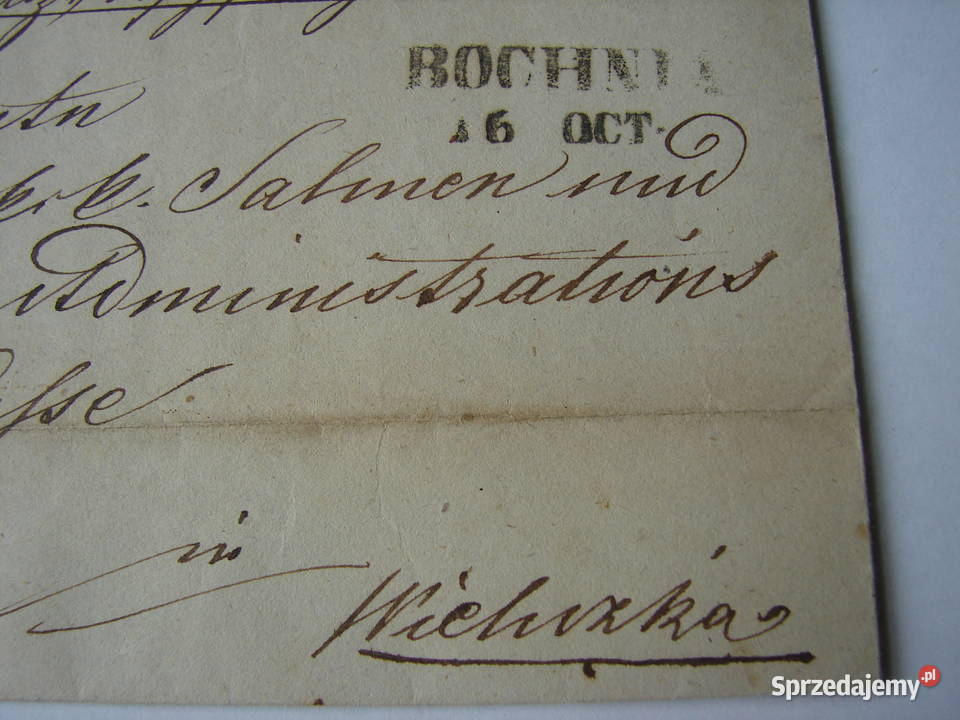 BOCHNIA
16 OCT.
k. k. Salinen und
Administrations
in
Wieliczka
Sprzedajemy.pl